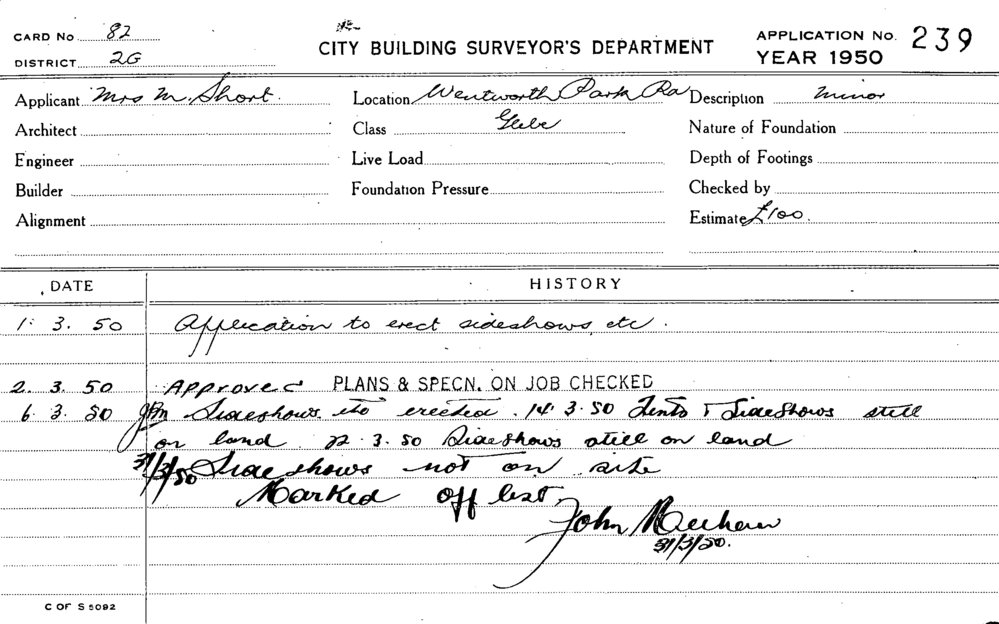 CARD No 82
DISTRICT 2G
CITY BUILDING SURVEYOR'S DEPARTMENT
APPLICATION No. 239
YEAR 1950
Applicant Mrs M. Short.
Location Wentworth Park Rd
Description minor
Architect
Class Glebe
Nature of Foundation
Engineer
Live Load
Depth of Footings
Builder
Foundation Pressure
Checked by
Alignment
Estimate £100.
DATE HISTORY
1. 3. 50 Application to erect sideshows, etc.
2. 3. 50 Approved PLANS & SPECN. ON JOB CHECKED
6. 3. 50 Sideshows etc erected. 14. 3. 50 Tents & Sideshows still
on land. 22. 3. 50 Sideshows still on land
31/3/50 Sideshows not on site
Marked off list.
John
31/3/50.
C OF S 5092